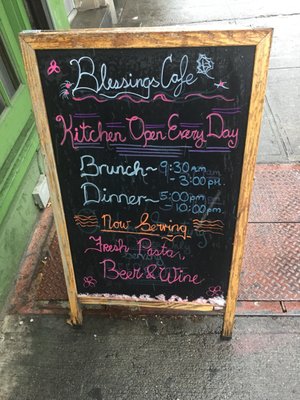 Blessings Cafe
Kitchen Open Every Day
Brunch~ 9:30am
-3:00pm
Dinner~ 5:00pm
-10:00pm
Now Serving
Fresh Pasta
Beer & Wine